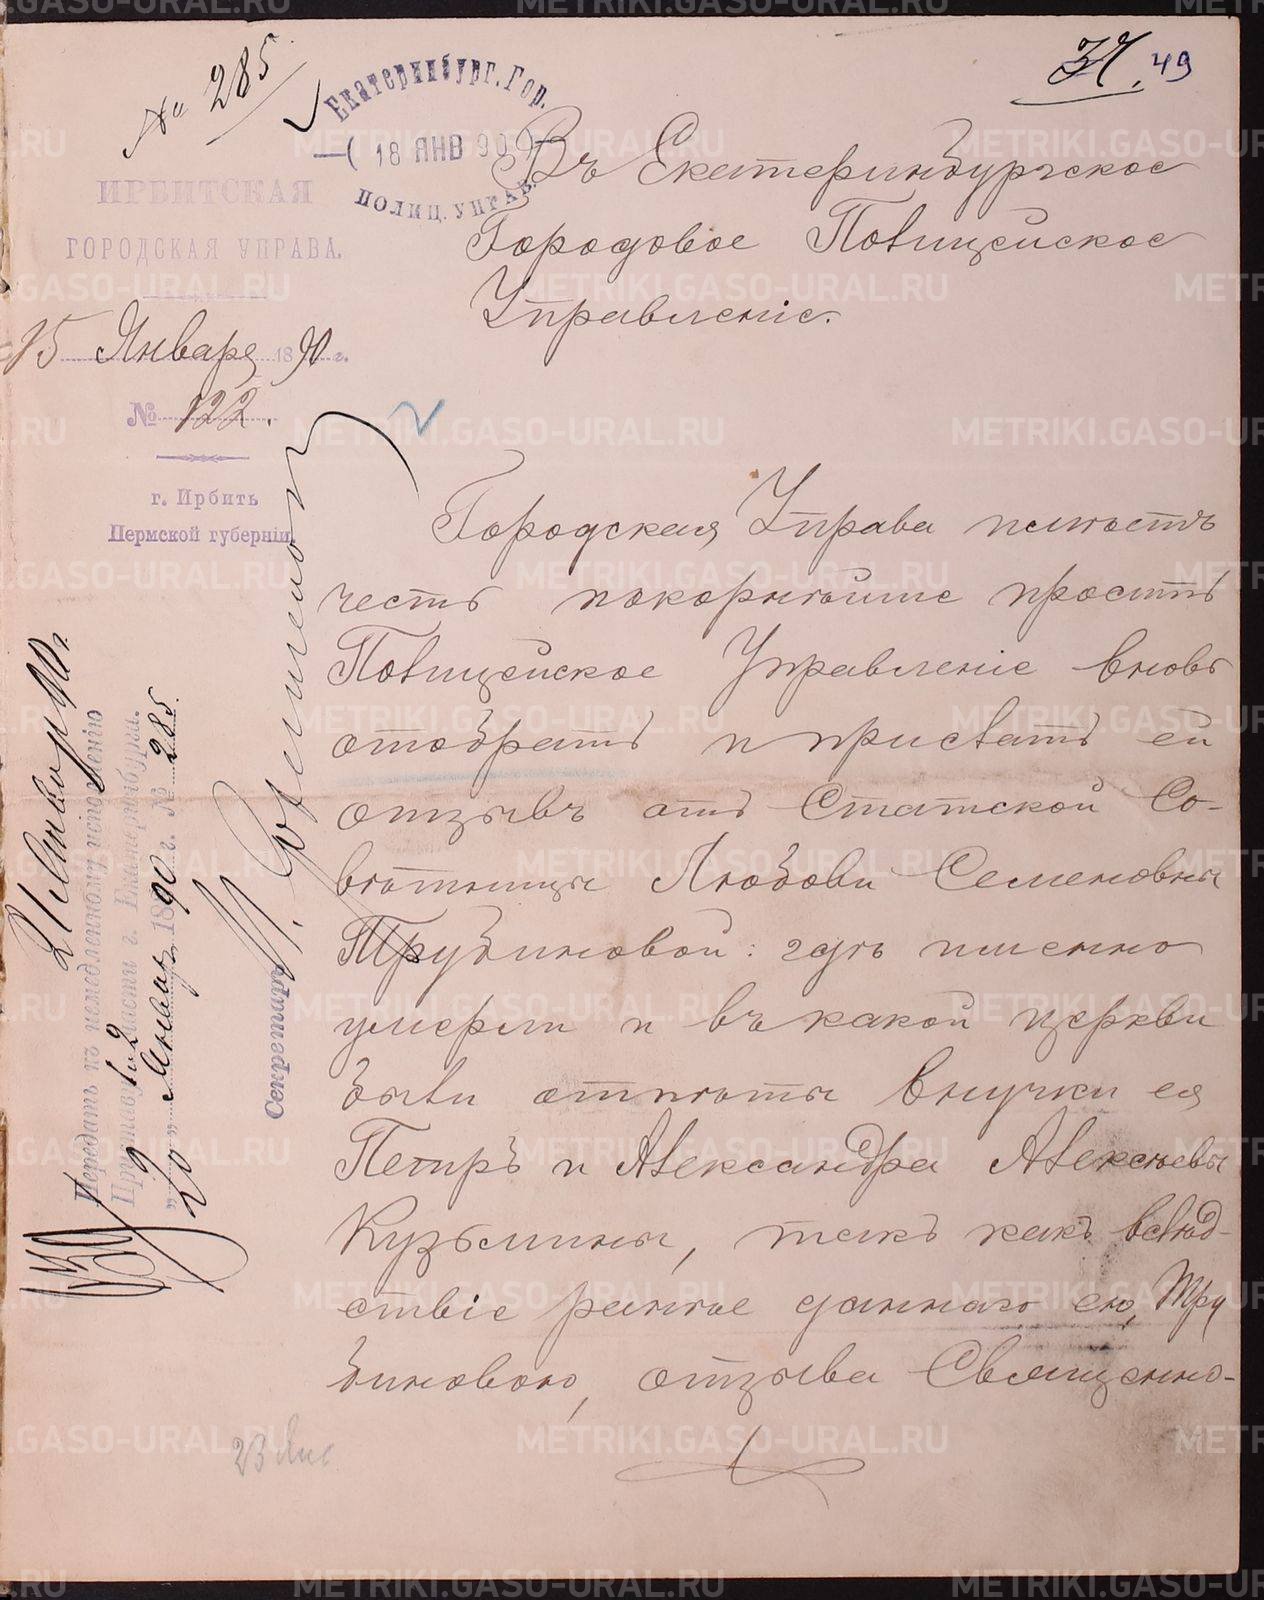 № 285
Екатеринбург. Гор.
18 ЯНВ 90
ПОЛИЦ. УПРАВ.
49
ИРБИТСКАЯ
ГОРОДСКАЯ УПРАВА.
15 Января 1890 г.
№ 122.
г. Ирбитъ
Пермской губерніи.
Въ Екатеринбургское
Городовое Полицейское
Управленіе.
Городская Управа имѣетъ
честь покорнѣйше проситъ
Полицейское Управленіе вновь
отобрать и прислать ей
отзывъ отъ Статской Со-
вѣтницы Любови Семеновны
Трубиновой: гдѣ именно
умерли и въ какой церкви
были отпѣты внучки ея
Петръ и Александра Алексѣевы
Кузьмины, такъ какъ вслѣд-
ствіе ранѣе даннаго ею, Тру
биновою, отзыва Священно-
Передать къ немедленному исполненію
Приставу 1 и 2 части г. Екатеринбурга.
„20" Января 1890 г. № 285.
Секретарь
21 Января 90 г.
23 Янв
METRIKI.GASO-URAL.RU